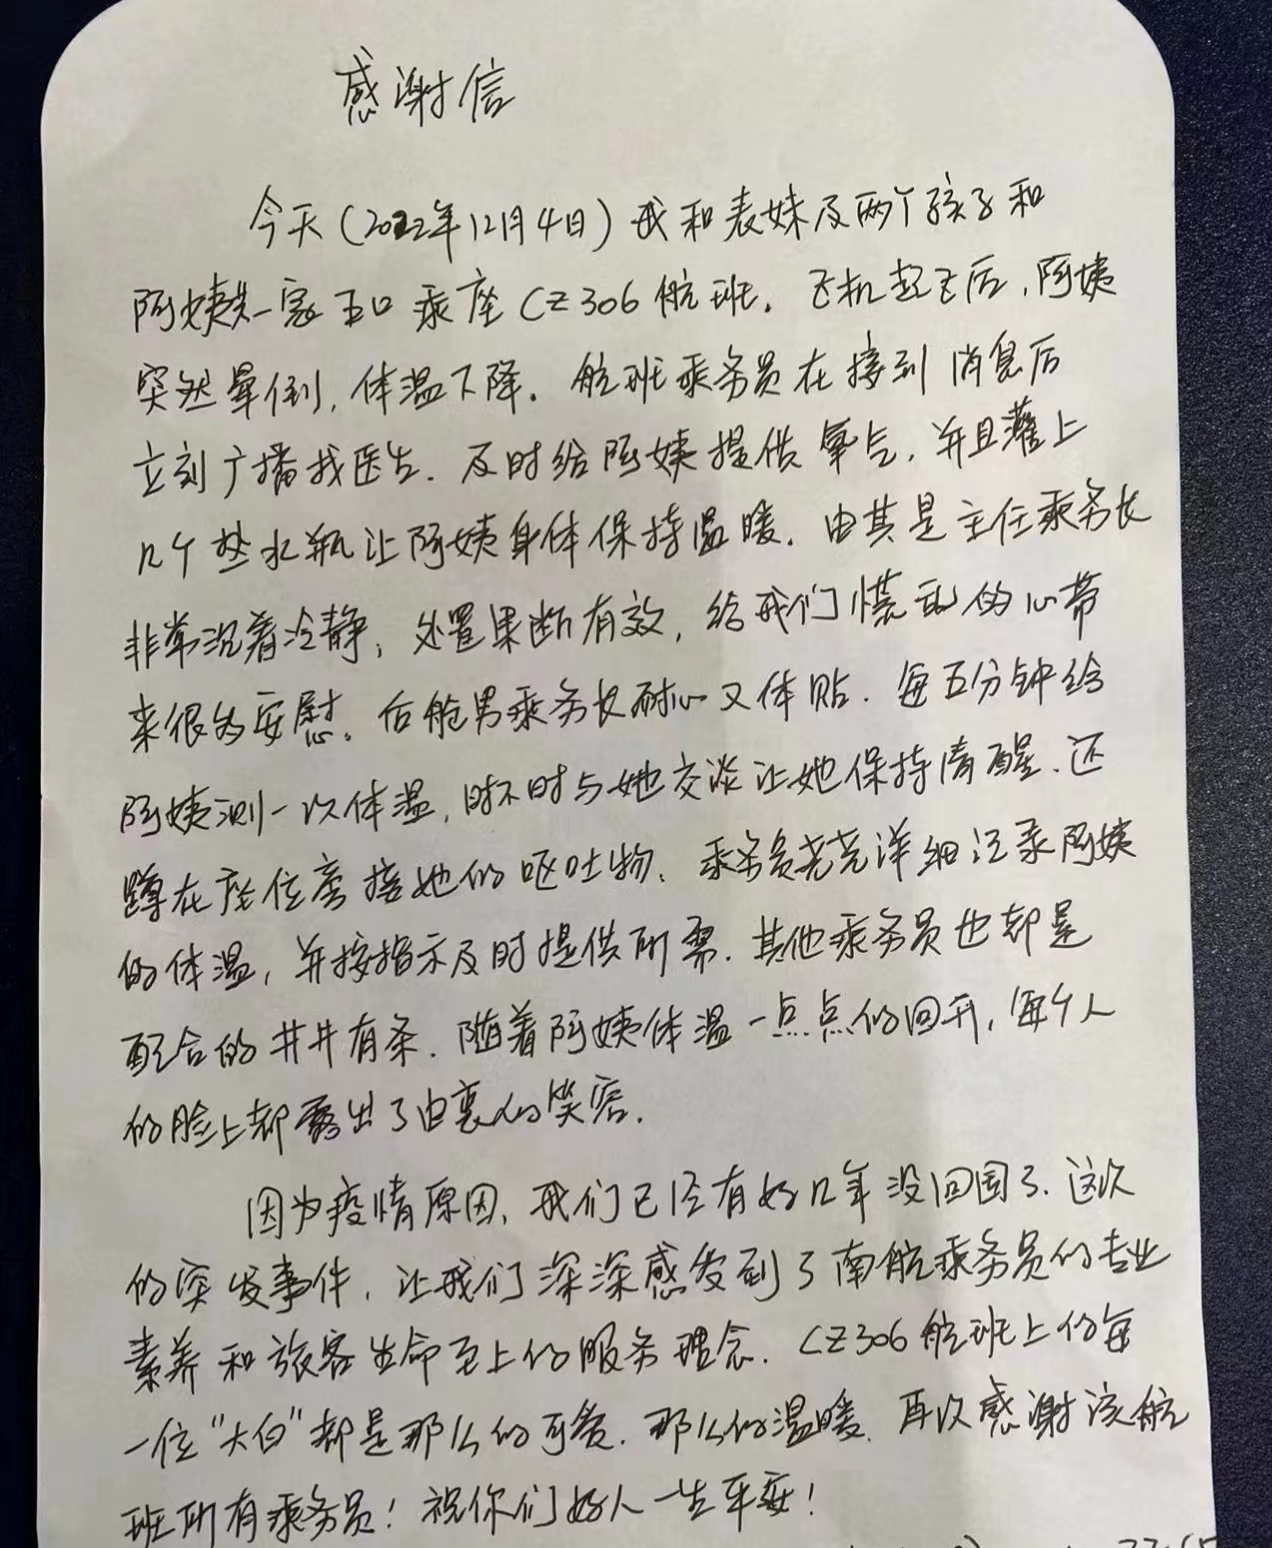 感谢信
今天(2022年12月4日)我和表妹及两个孩子和
阿姨一家五口乘座CZ306航班。飞机起飞后,阿姨
突然晕倒,体温下降。航班乘务员在接到消息后
立刻广播找医生.及时给阿姨提供氧气,并且灌上
几个热水瓶让阿姨身体保持温暖.由其是主任乘务长
非常沉着冷静,处置果断有效,给我们慌乱的心带
来很多安慰。后舱男乘务长耐心又体贴.每五分钟给
阿姨测一次体温,时不时与她交谈让她保持清醒.还
蹲在座位旁接她的呕吐物.乘务员尧尧详细记录阿姨
的体温,并按指示及时提供所需.其他乘务员也都是
配合的井井有条.随着阿姨体温一点点的回升,每个人
的脸上都露出了由衷的笑容.
因为疫情原因,我们已经有好几年没回国了.这次
的突发事件,让我们深深感受到了南航乘务员的专业
素养和旅客生命至上的服务理念.CZ306航班上的每
一位"大白"都是那么的可爱.那么的温暖.再次感谢该航
班所有乘务员!祝你们好人一生平安!